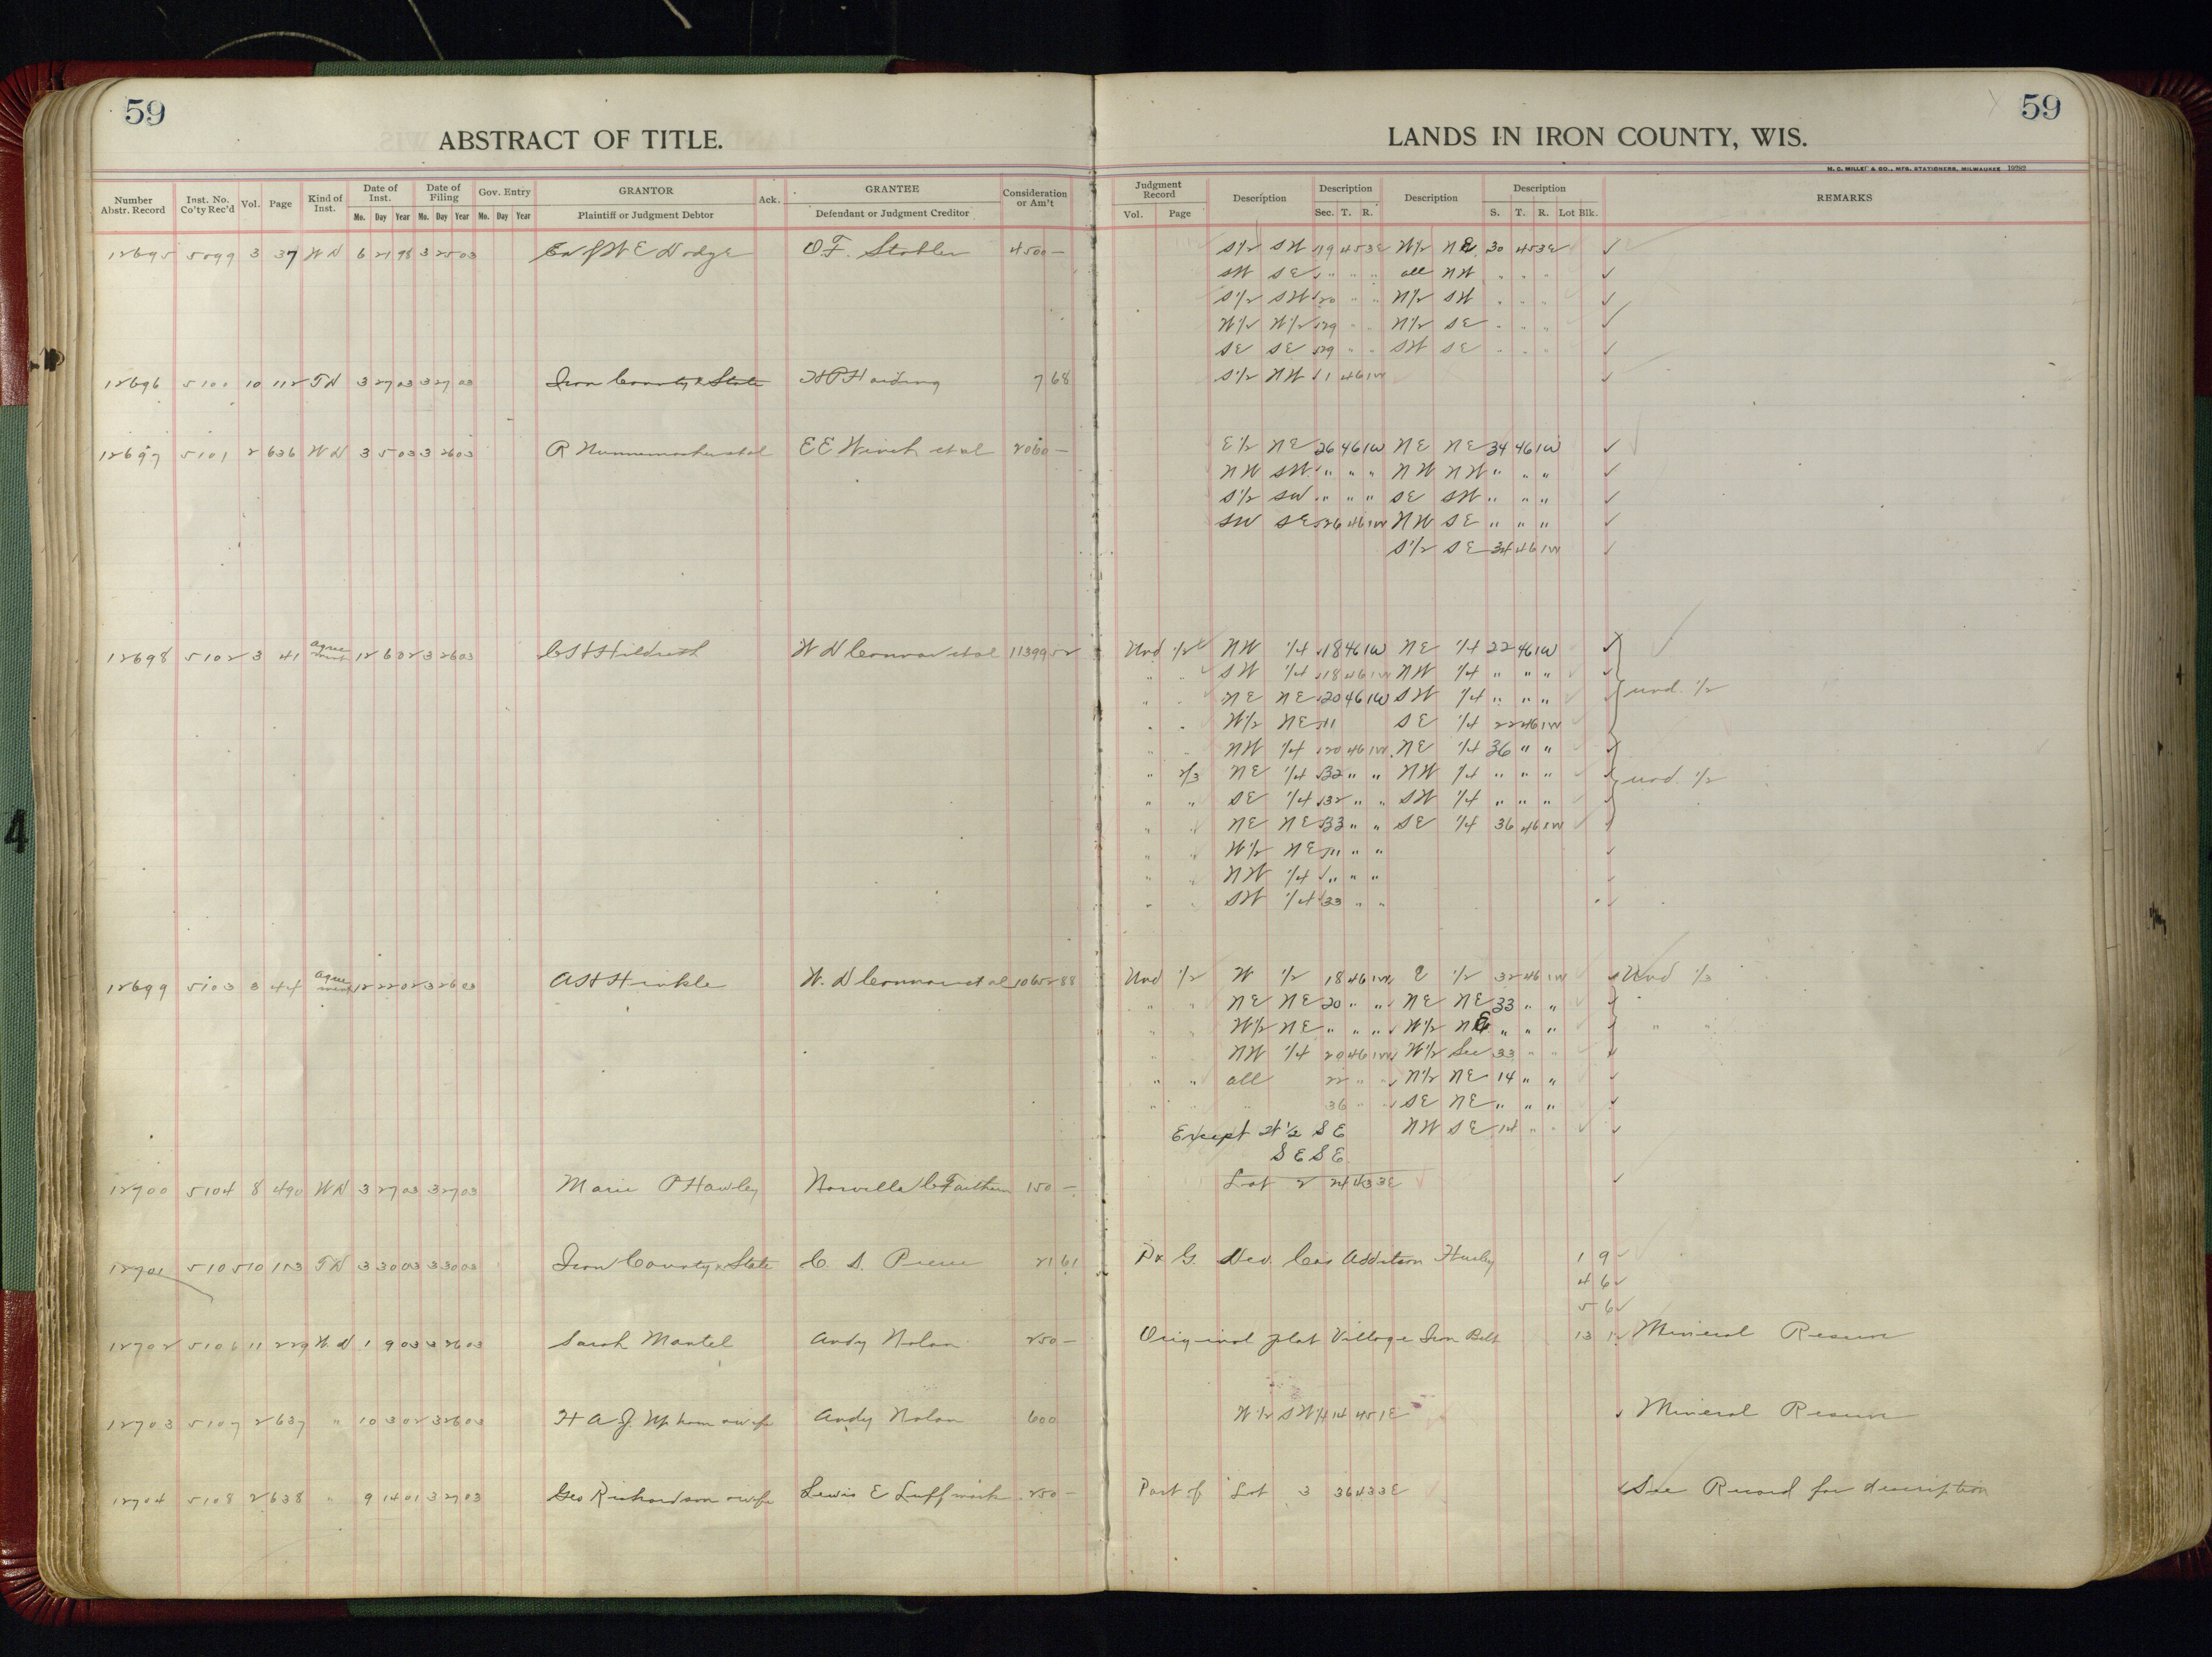 59
ABSTRACT OF TITLE.
Number Abstr. Record Inst. No. Co'ty Rec'd Vol. Page Kind of Inst. Date of Inst. Mo. Day Year Date of Filing Mo. Day Year Gov. Entry Mo. Day Year GRANTOR Plaintiff or Judgment Debtor Ack. GRANTEE Defendant or Judgment Creditor Consideration or Am't
12695 5099 3 37 WD 6 21 98 3 25 03 W E Dodge O.F. Stabler 4500 —
12696 5100 10 112 TD 3 27 03 3 27 03 Iron County & State H P Harding 7 68
12697 5101 2 636 WD 3 5 03 3 26 03 R Nunnemacher et al E E Winch et al 2060 —
12698 5102 3 41 agree ment 12 6 02 3 26 03 C S Hildreth W D Connor et al 11399 52
12699 5103 3 44 agree ment 12 22 02 3 26 03 A H Hinkle W. D Connor et al 10652 88
12700 5104 8 490 WD 3 27 03 3 27 03 Marie P Hawley 150 —
12701 5105 10 113 TD 3 30 03 3 30 03 Iron County & State C. S. Pierce 21 61
12702 5106 11 229 W. D 1 9 03 3 26 03 Sarah Mantel Andy Nolan 250 —
12703 5107 2 637 " 10 3 02 3 26 03 H A J. Upham & wife Andy Nolan 600
12704 5108 2 638 " 9 14 01 3 27 03 Geo Richardson & wife Lewis E 250 —
59
LANDS IN IRON COUNTY, WIS.
H. C. MILLER & CO., MFG. STATIONERS, MILWAUKEE
Judgment Record Vol. Page Description Description Sec. T. R. Description Description S. T. R. Lot Blk. REMARKS
S 1/2 SW 19 45 3E W 1/2 NE 30 45 3E
SW SE " " " all NW " " "
S 1/2 SW 20 " " N 1/2 SW " " "
W 1/2 W 1/2 29 " " N 1/2 SE " " "
SE SE 29 " " SW SE " " "
S 1/2 NW 1 46 1W
E 1/2 NE 26 46 1W NE NE 34 46 1W
NW SW " " " NW NW " " "
S 1/2 SW " " " SE SW " " "
SW SE 26 46 1W NW SE " " "
S 1/2 SE 34 46 1W
Und 1/2 NW 1/4 18 46 1W NE 1/4 22 46 1W
" " SW 1/4 18 46 1W NW 1/4 " " "
" " NE NE 20 46 1W SW 1/4 " " " und. 1/2
" " W 1/2 NE " SE 1/4 22 46 1W
" " NW 1/4 20 46 1W NE 1/4 36 " "
" 2/3 NE 1/4 32 " " NW 1/4 " " " und. 1/2
" " SE 1/4 32 " " SW 1/4 " " "
" " NE NE 33 " " SE 1/4 36 46 1W
" " W 1/2 NE " " "
" " NW 1/4 " " "
" " SW 1/4 33 " "
Und 1/2 W 1/2 18 46 1W E 1/2 32 46 1W Und 1/3
" " NE NE 20 " " NE NE 33 " " "
" " W 1/2 NE " " " W 1/2 NE " " " " "
" " NW 1/4 20 46 1W W 1/2 Sec 33 " "
" " all 22 " " N 1/2 NE 14 " "
" " " 36 " " SE NE " " "
Except W 1/2 SE NW SE 14 " "
SE SE
Lot 2 24 43 3E
P & G. Dev. Cos Addition Hurley 1 9
4 6
5 6
Original plat Village Iron Belt 13 Mineral Reserve
W 1/2 SW 1/4 14 45 1E Mineral Reserve
Part of Lot 3 36 43 3E See Record for description
4